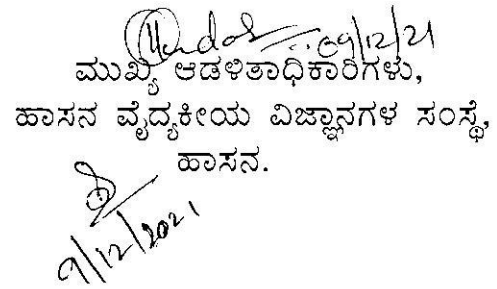 09/12/21
ಮುಖ್ಯ ಆಡಳಿತಾಧಿಕಾರಿಗಳು,
ಹಾಸನ ವೈದ್ಯಕೀಯ ವಿಜ್ಞಾನಗಳ ಸಂಸ್ಥೆ,
ಹಾಸನ.
9/12/2021